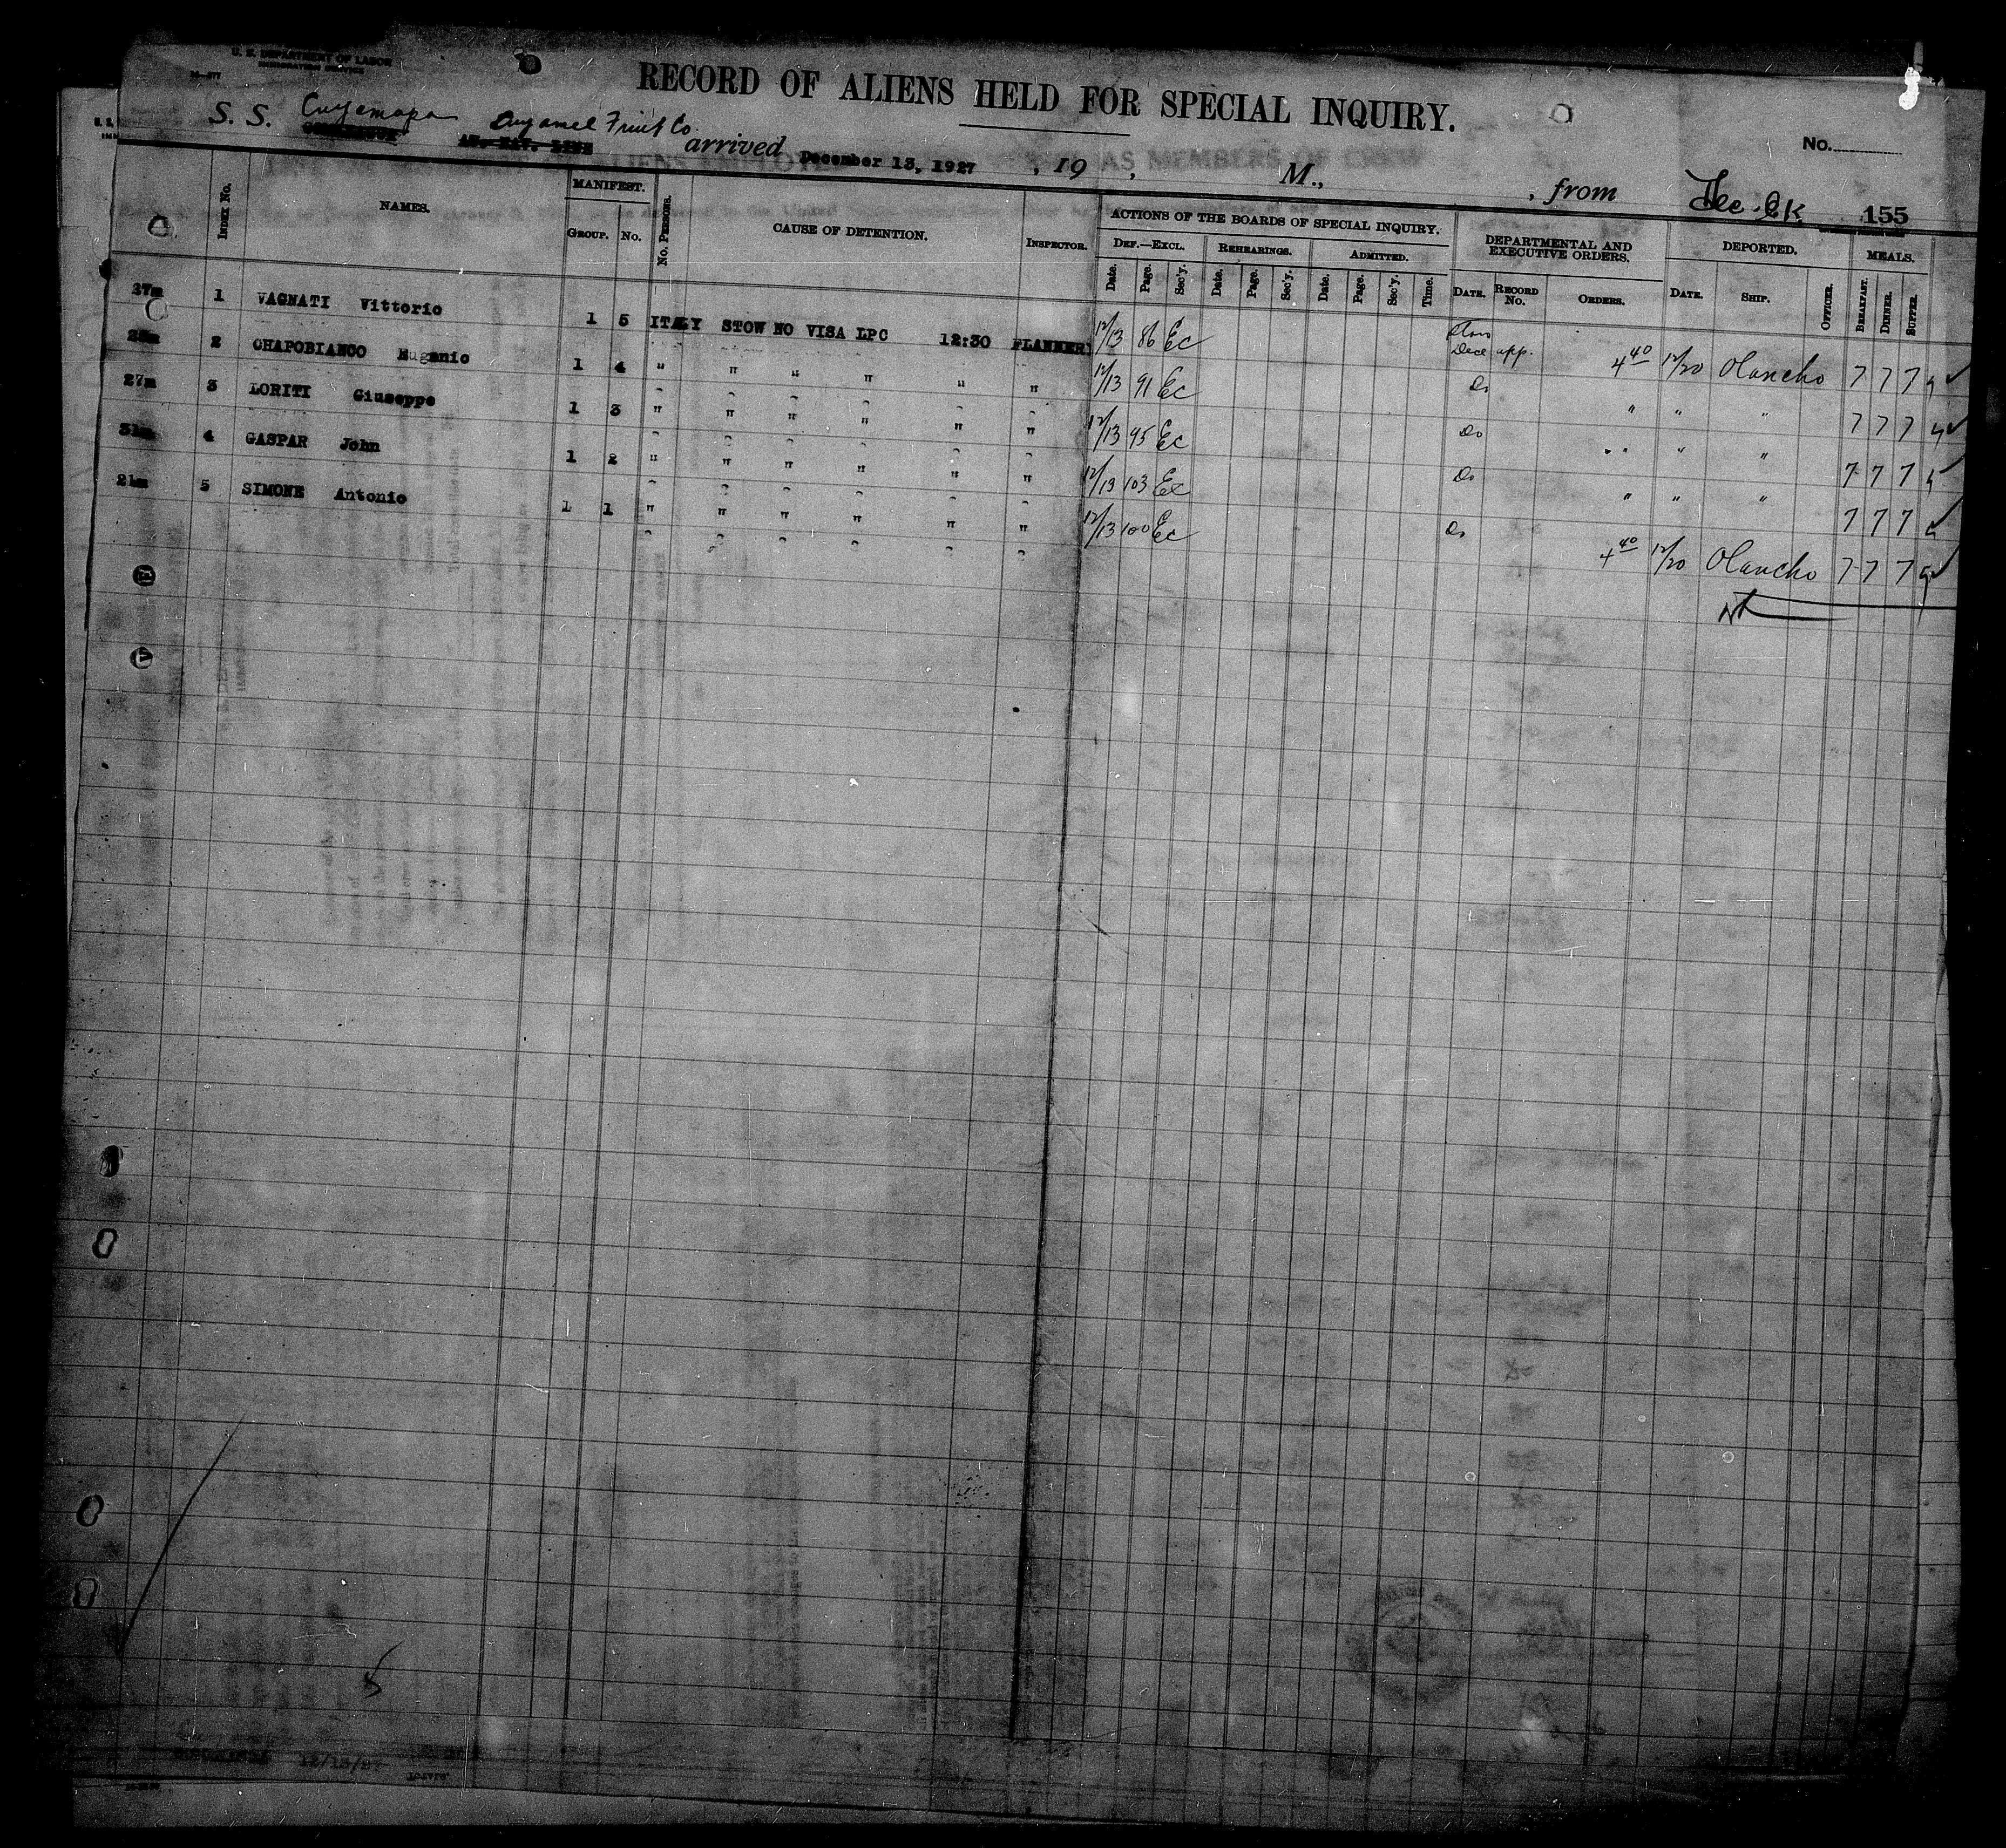 U. S. DEPARTMENT OF LABOR
IMMIGRATION SERVICE
RECORD OF ALIENS HELD FOR SPECIAL INQUIRY.
S. S. Cuyamapa Cuyamel Fruit Co. arrived December 13, 1927, 19 , M., , from
No.
155
INDEX No. NAMES. MANIFEST. GROUP. No. No. PERSONS. CAUSE OF DETENTION. INSPECTOR. ACTIONS OF THE BOARDS OF SPECIAL INQUIRY. DEF.—EXCL. Date. Page. Sec'y. REHEARINGS. Date. Page. Sec'y. ADMITTED. Date. Page. Sec'y. Time. DEPARTMENTAL AND EXECUTIVE ORDERS. DATE. RECORD No. ORDERS. DEPORTED. DATE. SHIP. OFFICER. MEALS. BREAKFAST. DINNER. SUPPER.
27m 1 VAGNATI Vittorio 1 5 ITALY STOW NO VISA LPC 12:30 FLANNERY 12/13 86 Ec app. 4 40 12/20 Olancho 7 7 7
2 CHAPOBIANCO Eugenio 1 4 " " " " " " 12/13 91 Ec Do " " " 7 7 7
27m 3 LORITI Giuseppe 1 3 " " " " " " 12/13 95 Ec Do " " " 7 7 7
31m 4 GASPAR John 1 2 " " " " " " 12/13 103 Ec Do " " " 7 7 7
21m 5 SIMONE Antonio 1 1 " " " " " " 12/13 100 Ec Do 4 40 12/20 Olancho 7 7 7
12/13/27